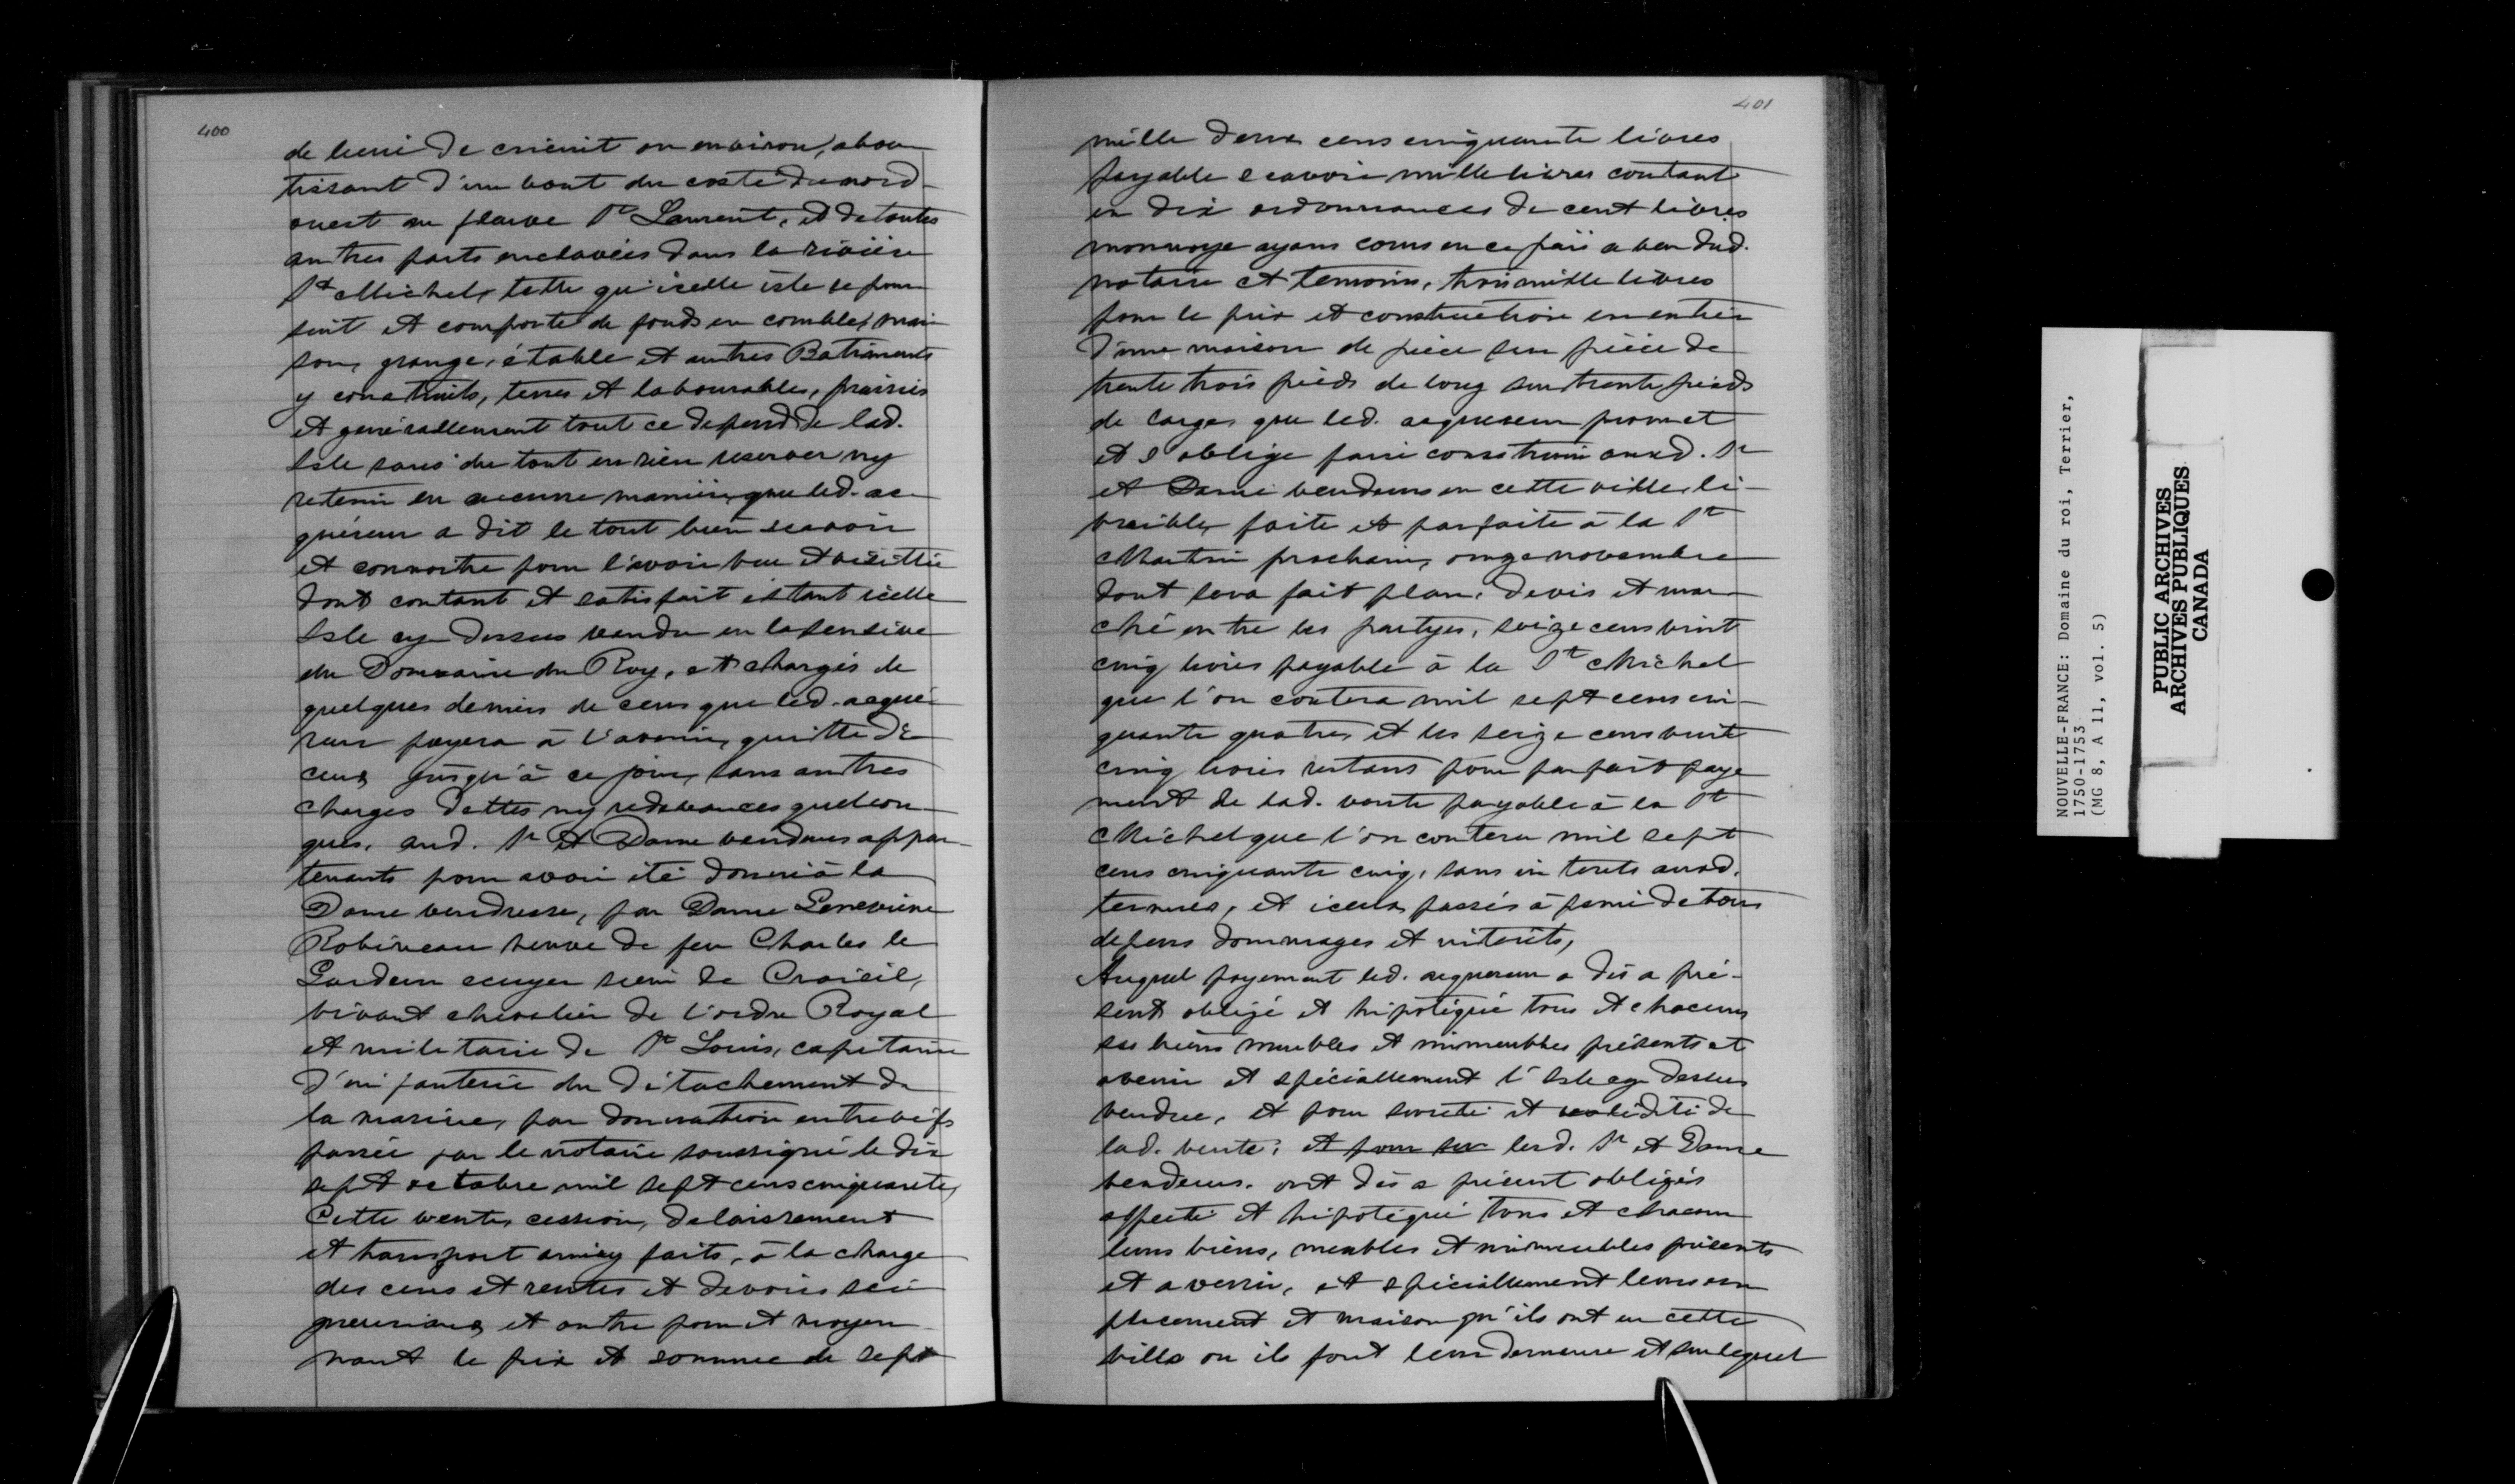 400
de lieüe de circuit ou environ, abou
tissant d'un bout du costé du nord-
ouest au fleuve St Laurent, et de toutes
autres parts enclavées dans la rivière
St Michel, telle qu'icelle isle se pour
suit et comporte de fonds en comble, mai
son, grange, étable et autres Batiments
y construits, terres et labourables, prairies
et generallement tout ce depend de lad.
Isle sans du tout en rien reserver ny
retenir en aucune manière, que led. ac
quéreur a dit le tout bien scavoir
et connoitre pour l'avoir vue et visittée
dont contant et satisfait estant icelle
Isle cy dessus vendu en la censive
du Domaine du Roy, et chargés de
quelques deniers de cens que led. acqué
reur payera à l'avenir, quitte de
ceux jusqu'à ce jour, sans autres
charges dettes ny redevances quelcon
ques, aud. Sr et Dame vendeurs appar-
tenants pour avoir été donné à la
Dame venderesse, par Dame Genevieve
Robineau veuve de feu Charles le
Gardeur ecuyer sieur de Croisil,
vivant chevalier de l'ordre Royal
et militaire de St Louis, capitaine
d'infanterie du détachement de
la marine, par donnation entre vifs
passée par le notaire soussigné le dix
sept octobre mil sept cens cinquante,
Cette vente, cession, delaissement
et transport ainsy faits, à la charge
des cens et rentes et devoirs sei
gneuriaux et outre pour et moyen
nant le prix et somme de sept
401
mille deux cens cinquante livres
payable scavoir mille livres contant
en dix ordonnances de cent livres
monnoye ayans cours en ce païs a veu dud.
notaire et temoins, trois mille livres
pour le prix et construction en entier
d'une maison de pièce sur pièce de
trente trois pieds de long sur trente pieds
de large, que led. acquereur promet
et s'oblige faire construire auxd. Sr
et Dame vendeurs en cette ville, li-
vrable, faite et parfaite à la St
Martin prochain, onze novembre
dont sera fait plan, devis et mar
ché entre les partyes, seize cens vint
cinq livres payable à la St Michel
que l'on contera mil sept cens cin-
quante quatre, et les seize cens vint
cinq livres restans pour parfait paye
ment de lad. vente payable à la St
Michel que l'on contera mil sept
cens cinquante cinq, sans interets auxd.
termes, et iceux passés à peine de tous
depens dommages et interêts,
Auquel payement led. acquereur a dès a pré-
sent obligé et hipotéqué tous et chacuns
ses biens meubles et immeubles présents et
avenir et spéciallement l'Isle cy dessus
vendue, et pour sureté et validité de
lad. vente; et pour sur lesd. Sr et Dame
vendeurs. ont dès a présent obligés
affecté et hipotéqué tous et chacun
leurs biens, meubles et immeubles présents
et avenir, et spéciallement leurs em
placement et maison qu'ils ont en cette
ville ou ils font leur demeure et sur lequel
NOUVELLE-FRANCE: Domaine du roi, Terrier,
1750-1753
(MG 8, A 11, vol. 5)
PUBLIC ARCHIVES
ARCHIVES PUBLIQUES
CANADA